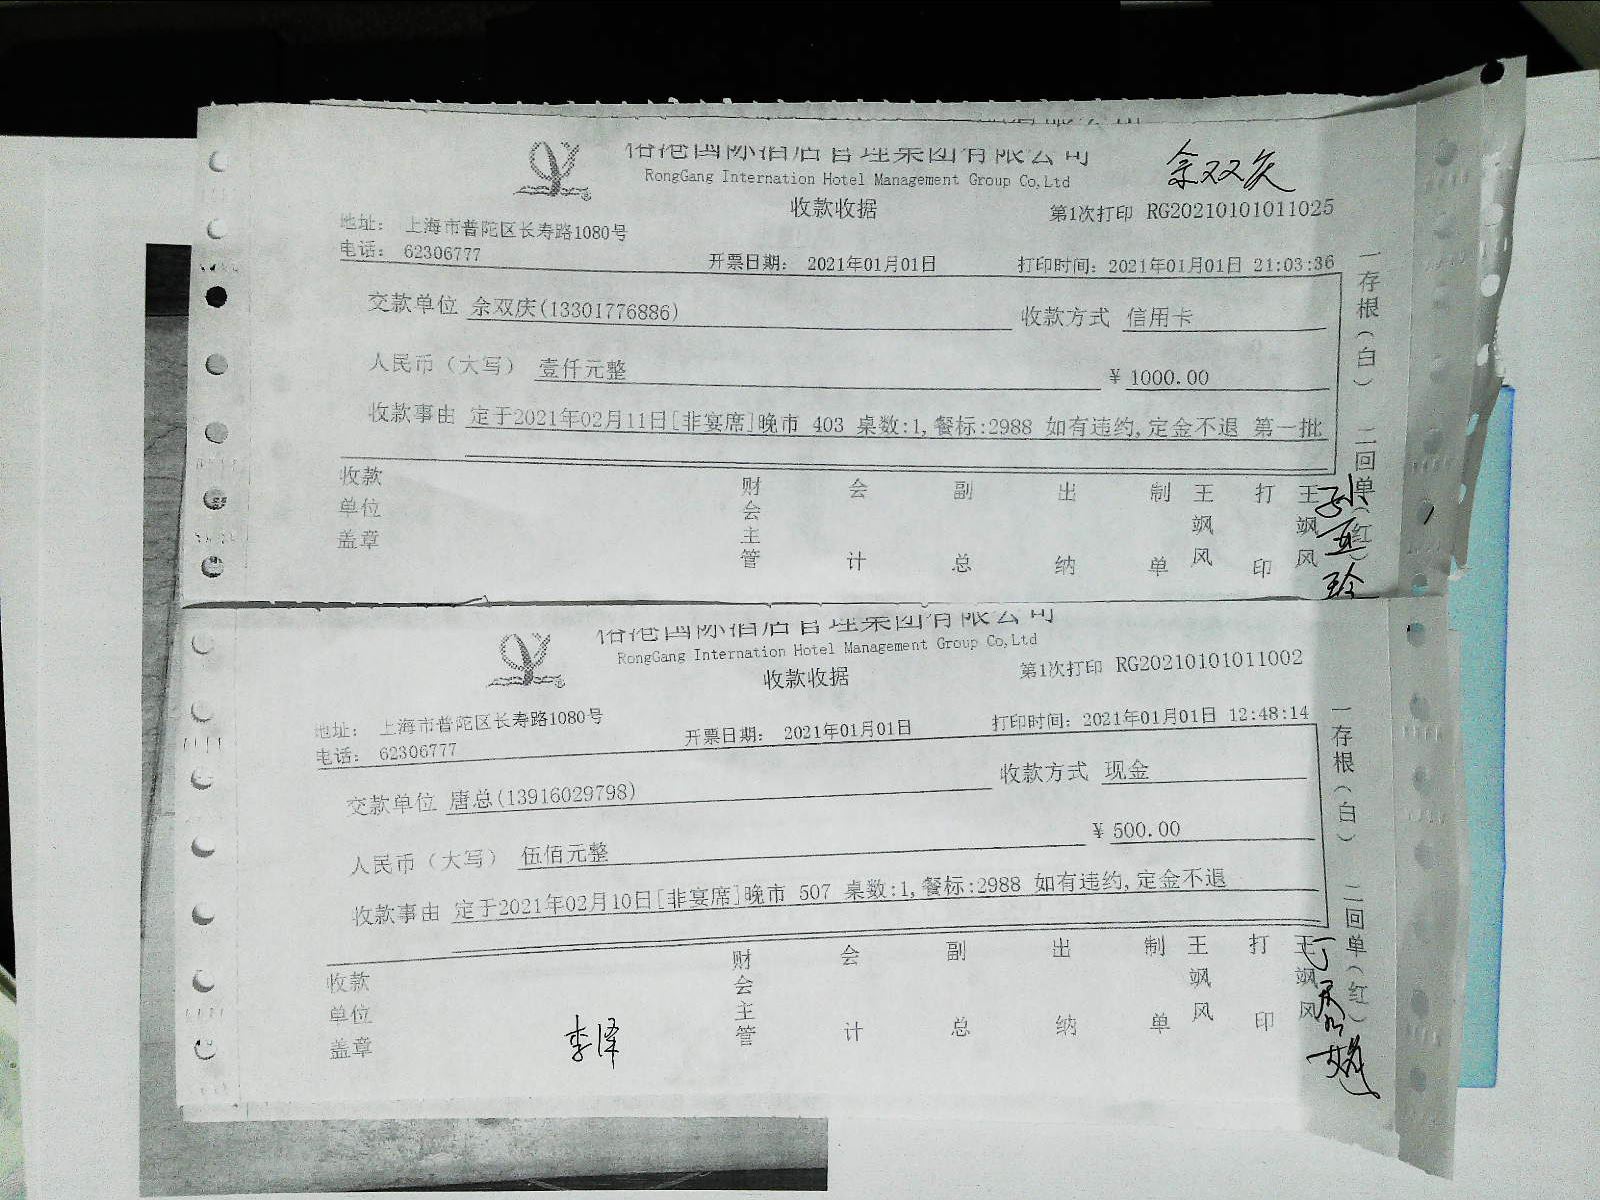 裕港国际酒店管理集团有限公司
RongGang Internation Hotel Management Group Co,Ltd
余双庆
收款收据
第1次打印 RG20210101011025
地址： 上海市普陀区长寿路1080号
电话： 62306777
开票日期： 2021年01月01日
打印时间：2021年01月01日 21:03:36
交款单位 余双庆(13301776886)
收款方式 信用卡
人民币（大写） 壹仟元整
¥ 1000.00
收款事由 定于2021年02月11日[非宴席]晚市 403 桌数:1,餐标:2988 如有违约,定金不退 第一批
收款单位盖章
财会主管
会计
副总
出纳
制单
王飒风
打印
王飒风
一存根（白） 二回单（红）
裕港国际酒店管理集团有限公司
RongGang Internation Hotel Management Group Co,Ltd
收款收据
第1次打印 RG20210101011002
地址： 上海市普陀区长寿路1080号
电话： 62306777
开票日期： 2021年01月01日
打印时间：2021年01月01日 12:48:14
交款单位 唐总(13916029798)
收款方式 现金
人民币（大写） 伍佰元整
¥ 500.00
收款事由 定于2021年02月10日[非宴席]晚市 507 桌数:1,餐标:2988 如有违约,定金不退
收款单位盖章
李泽
财会主管
会计
副总
出纳
制单
王飒风
打印
王飒风
一存根（白） 二回单（红）